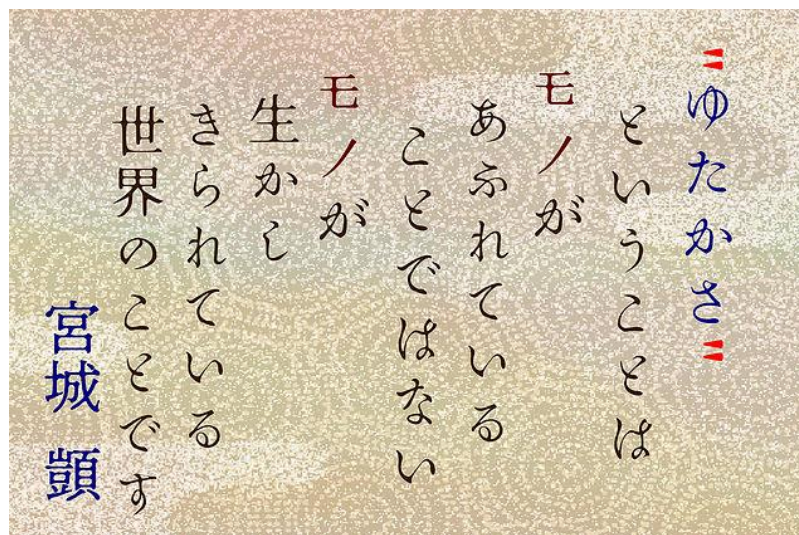 〝ゆたかさ〟
ということは
モノが
あふれている
ことではない
モノが
生かし
きられている
世界のことです
宮城 顗